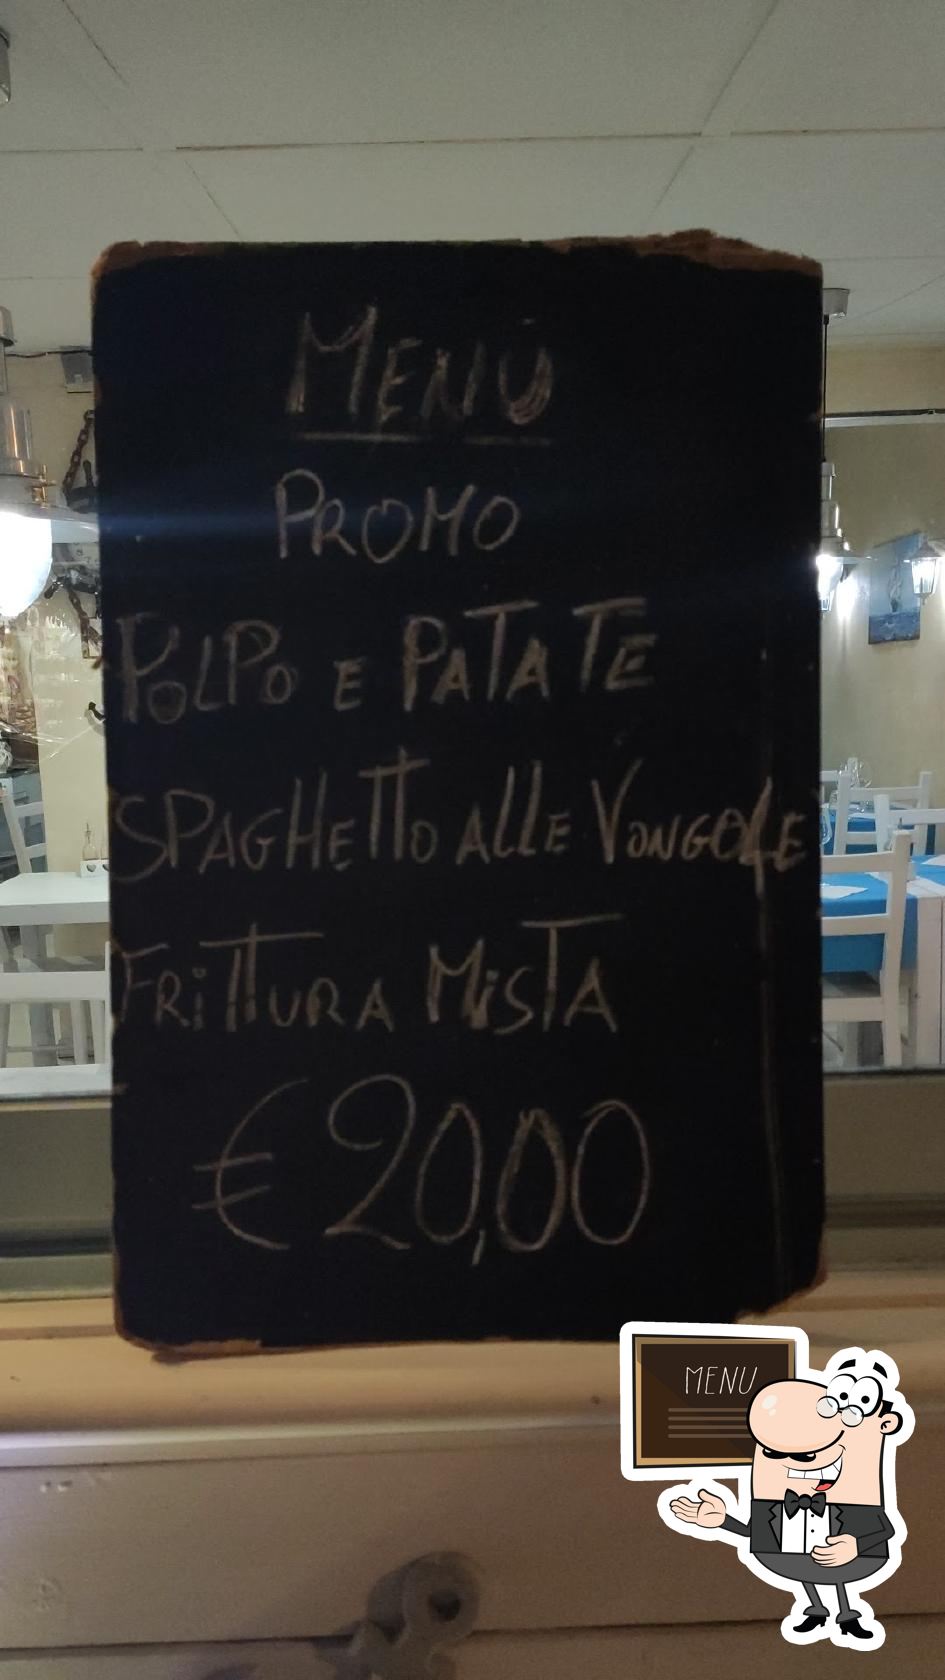 MENÙ
PROMO
POLPO E PATATE
SPAGHETTO ALLE VONGOLE
FRITTURA MISTA
€ 20,00
MENU